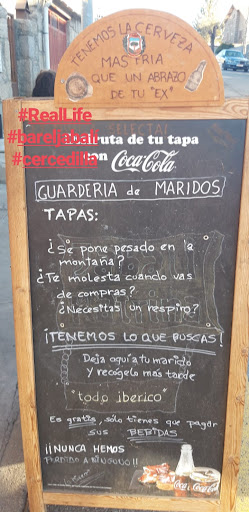 TENEMOS LA CERVEZA
MAS FRIA
QUE UN ABRAZO
DE TU "EX"
#RealLife
#bareljabali
#cercedilla
Disfruta de tu tapa
con Coca-Cola
GUARDERIA de MARIDOS
TAPAS:
¿Se pone pesado en la
montaña?
¿Te molesta cuando vas
de compras?
¿Necesitas un respiro?
¡TENEMOS LO QUE BUSCAS!
Deja aquí a tu marido
Y recógelo más tarde
"todo iberico"
Es gratis, sólo tienes que pagar
sus BEBIDAS
¡¡NUNCA HEMOS
PERDIDO A NINGUNO!!
Coca-Cola